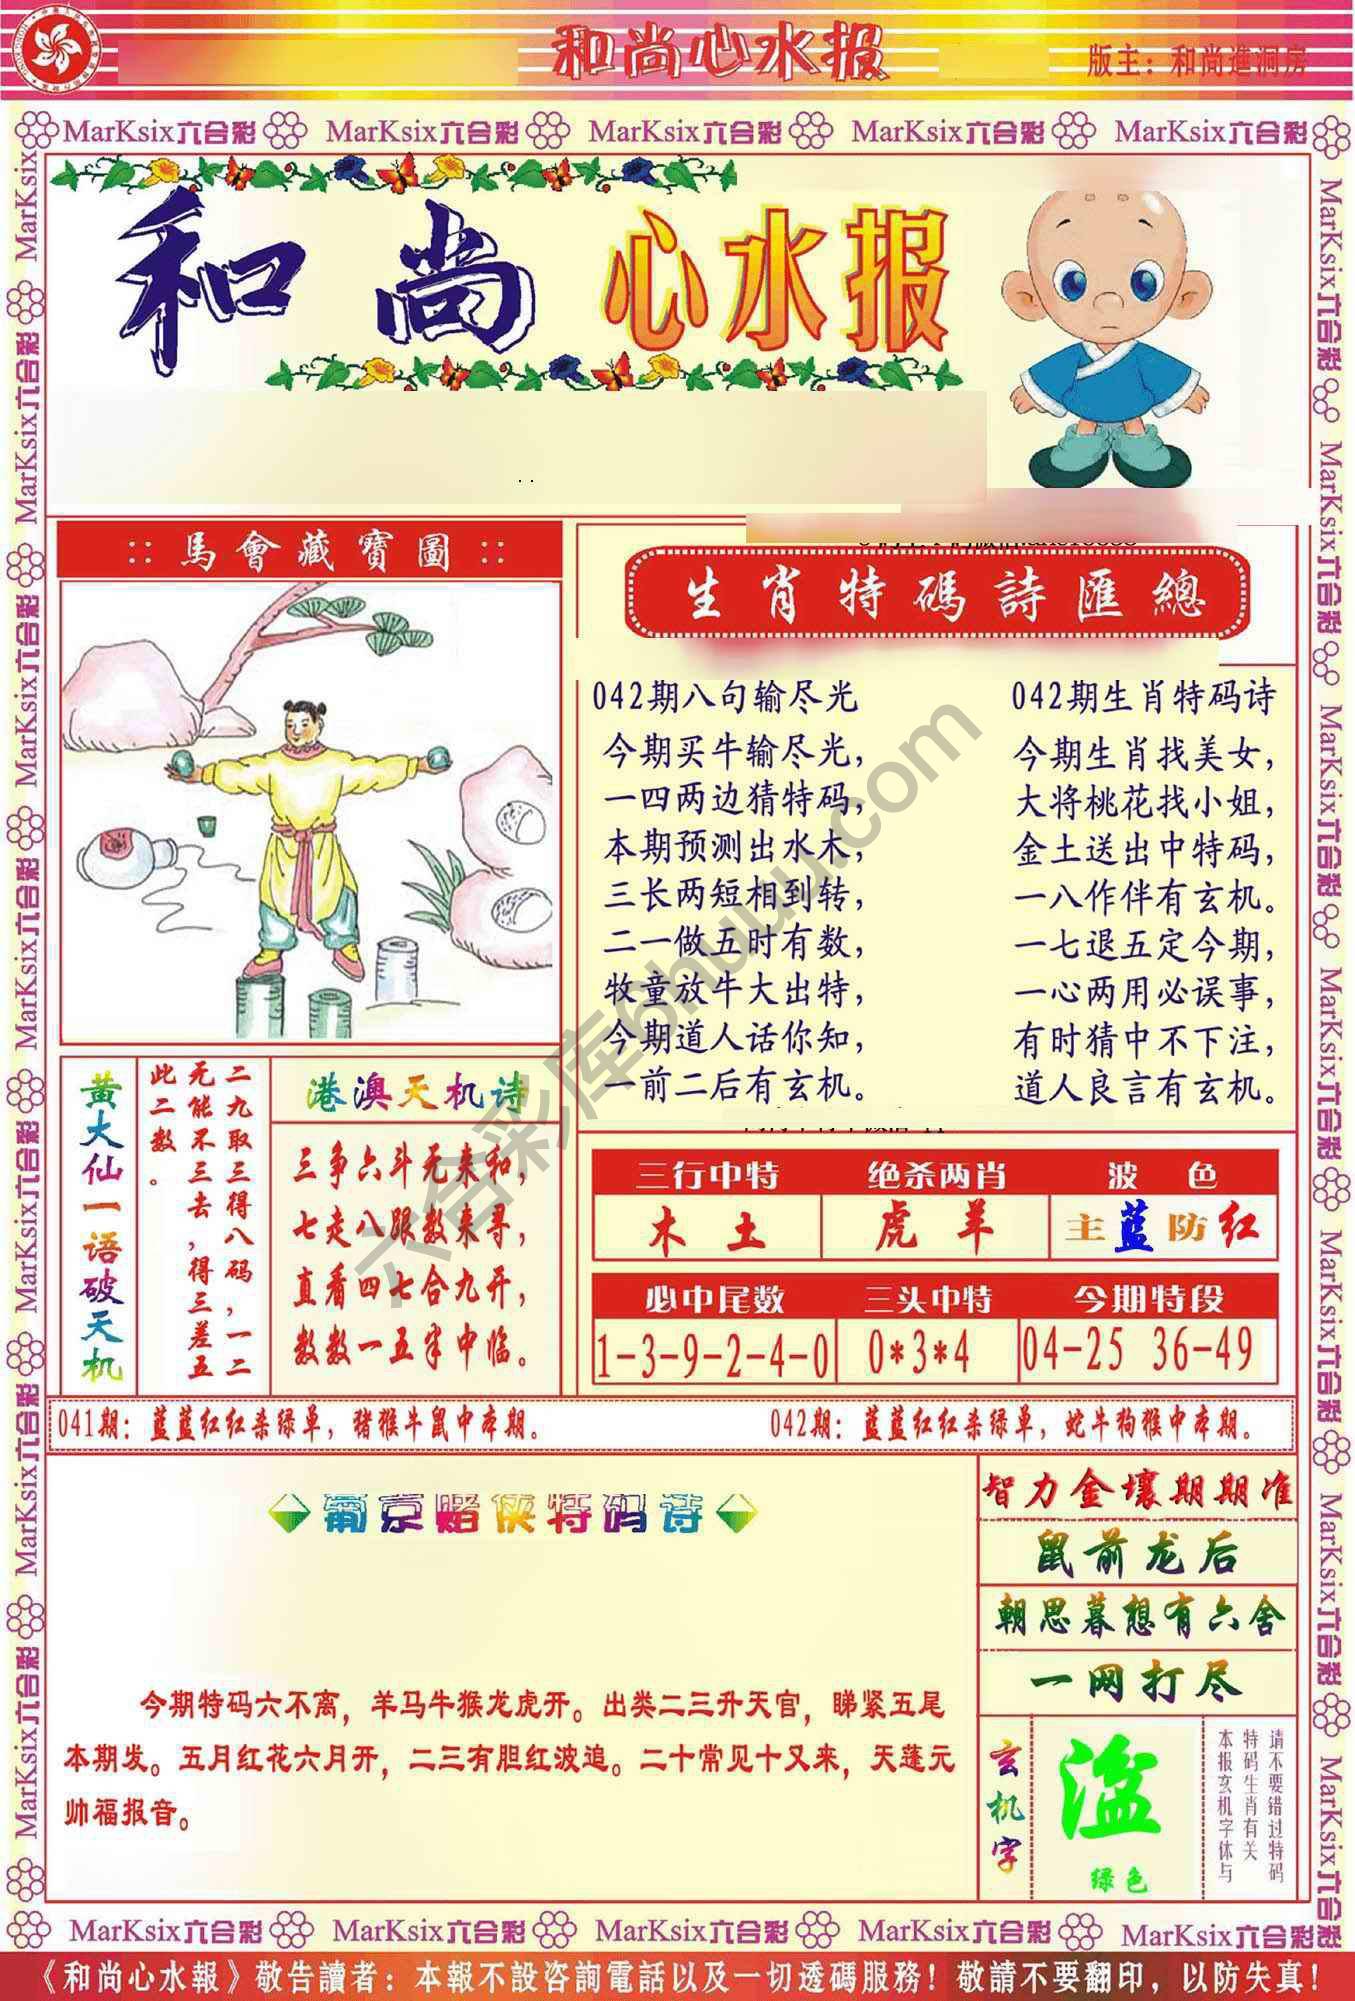 和尚心水报
版主：和尚進洞房
MarKsix六合彩 MarKsix六合彩 MarKsix六合彩 MarKsix六合彩 MarKsix六合彩
和尚心水报
::馬會藏寶圖::
生肖特碼詩匯總
042期八句输尽光
今期买牛输尽光，
一四两边猜特码，
本期预测出水木，
三长两短相到转，
二一做五时有数，
牧童放牛大出特，
今期道人话你知，
一前二后有玄机。
042期生肖特码诗
今期生肖找美女，
大将桃花找小姐，
金土送出中特码，
一八作伴有玄机。
一七退五定今期，
一心两用必误事，
有时猜中不下注，
道人良言有玄机。
黄大仙一语破天机
二九取三得八码，一二
无能不三去，得三差五
此二数。
港澳天机诗
三争六斗无来和，
七走八跟数来寻，
直看四七合九开，
数数一五半中临。
三行中特 绝杀两肖 波色
木土 虎羊 主蓝防红
必中尾数 三头中特 今期特段
1-3-9-2-4-0 0*3*4 04-25 36-49
041期：蓝蓝红红杀绿单，猪猴牛鼠中本期。
042期：蓝蓝红红杀绿单，蛇牛狗猴中本期。
葡京赌侠特码诗
今期特码六不离，羊马牛猴龙虎开。出类二三升天官，睇紧五尾
本期发。五月红花六月开，二三有胆红波追。二十常见十又来，天蓬元
帅福报音。
智力金壤期期准
鼠前龙后
朝思暮想有六舍
一网打尽
玄机字
溢
绿色
请不要错过特码
特码生肖有关
本报玄机字体与
六合彩库6huuu.com
MarKsix六合彩 MarKsix六合彩 MarKsix六合彩 MarKsix六合彩 MarKsix六合彩
《和尚心水報》敬告讀者：本報不設咨詢電話以及一切透碼服務！敬請不要翻印，以防失真！